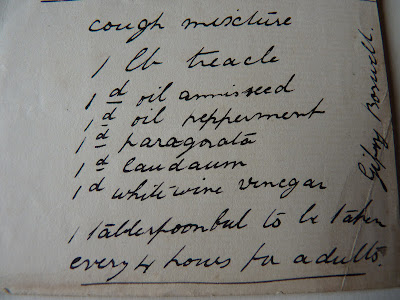 cough mixture
1 lb treacle
1d oil annisseed
1d oil pepperment
1d paragorata
1d laudaum
1d white wine vinegar
1 tablerspoonbul to be taken
every 4 hours for adults.
Gipsy Boswell.